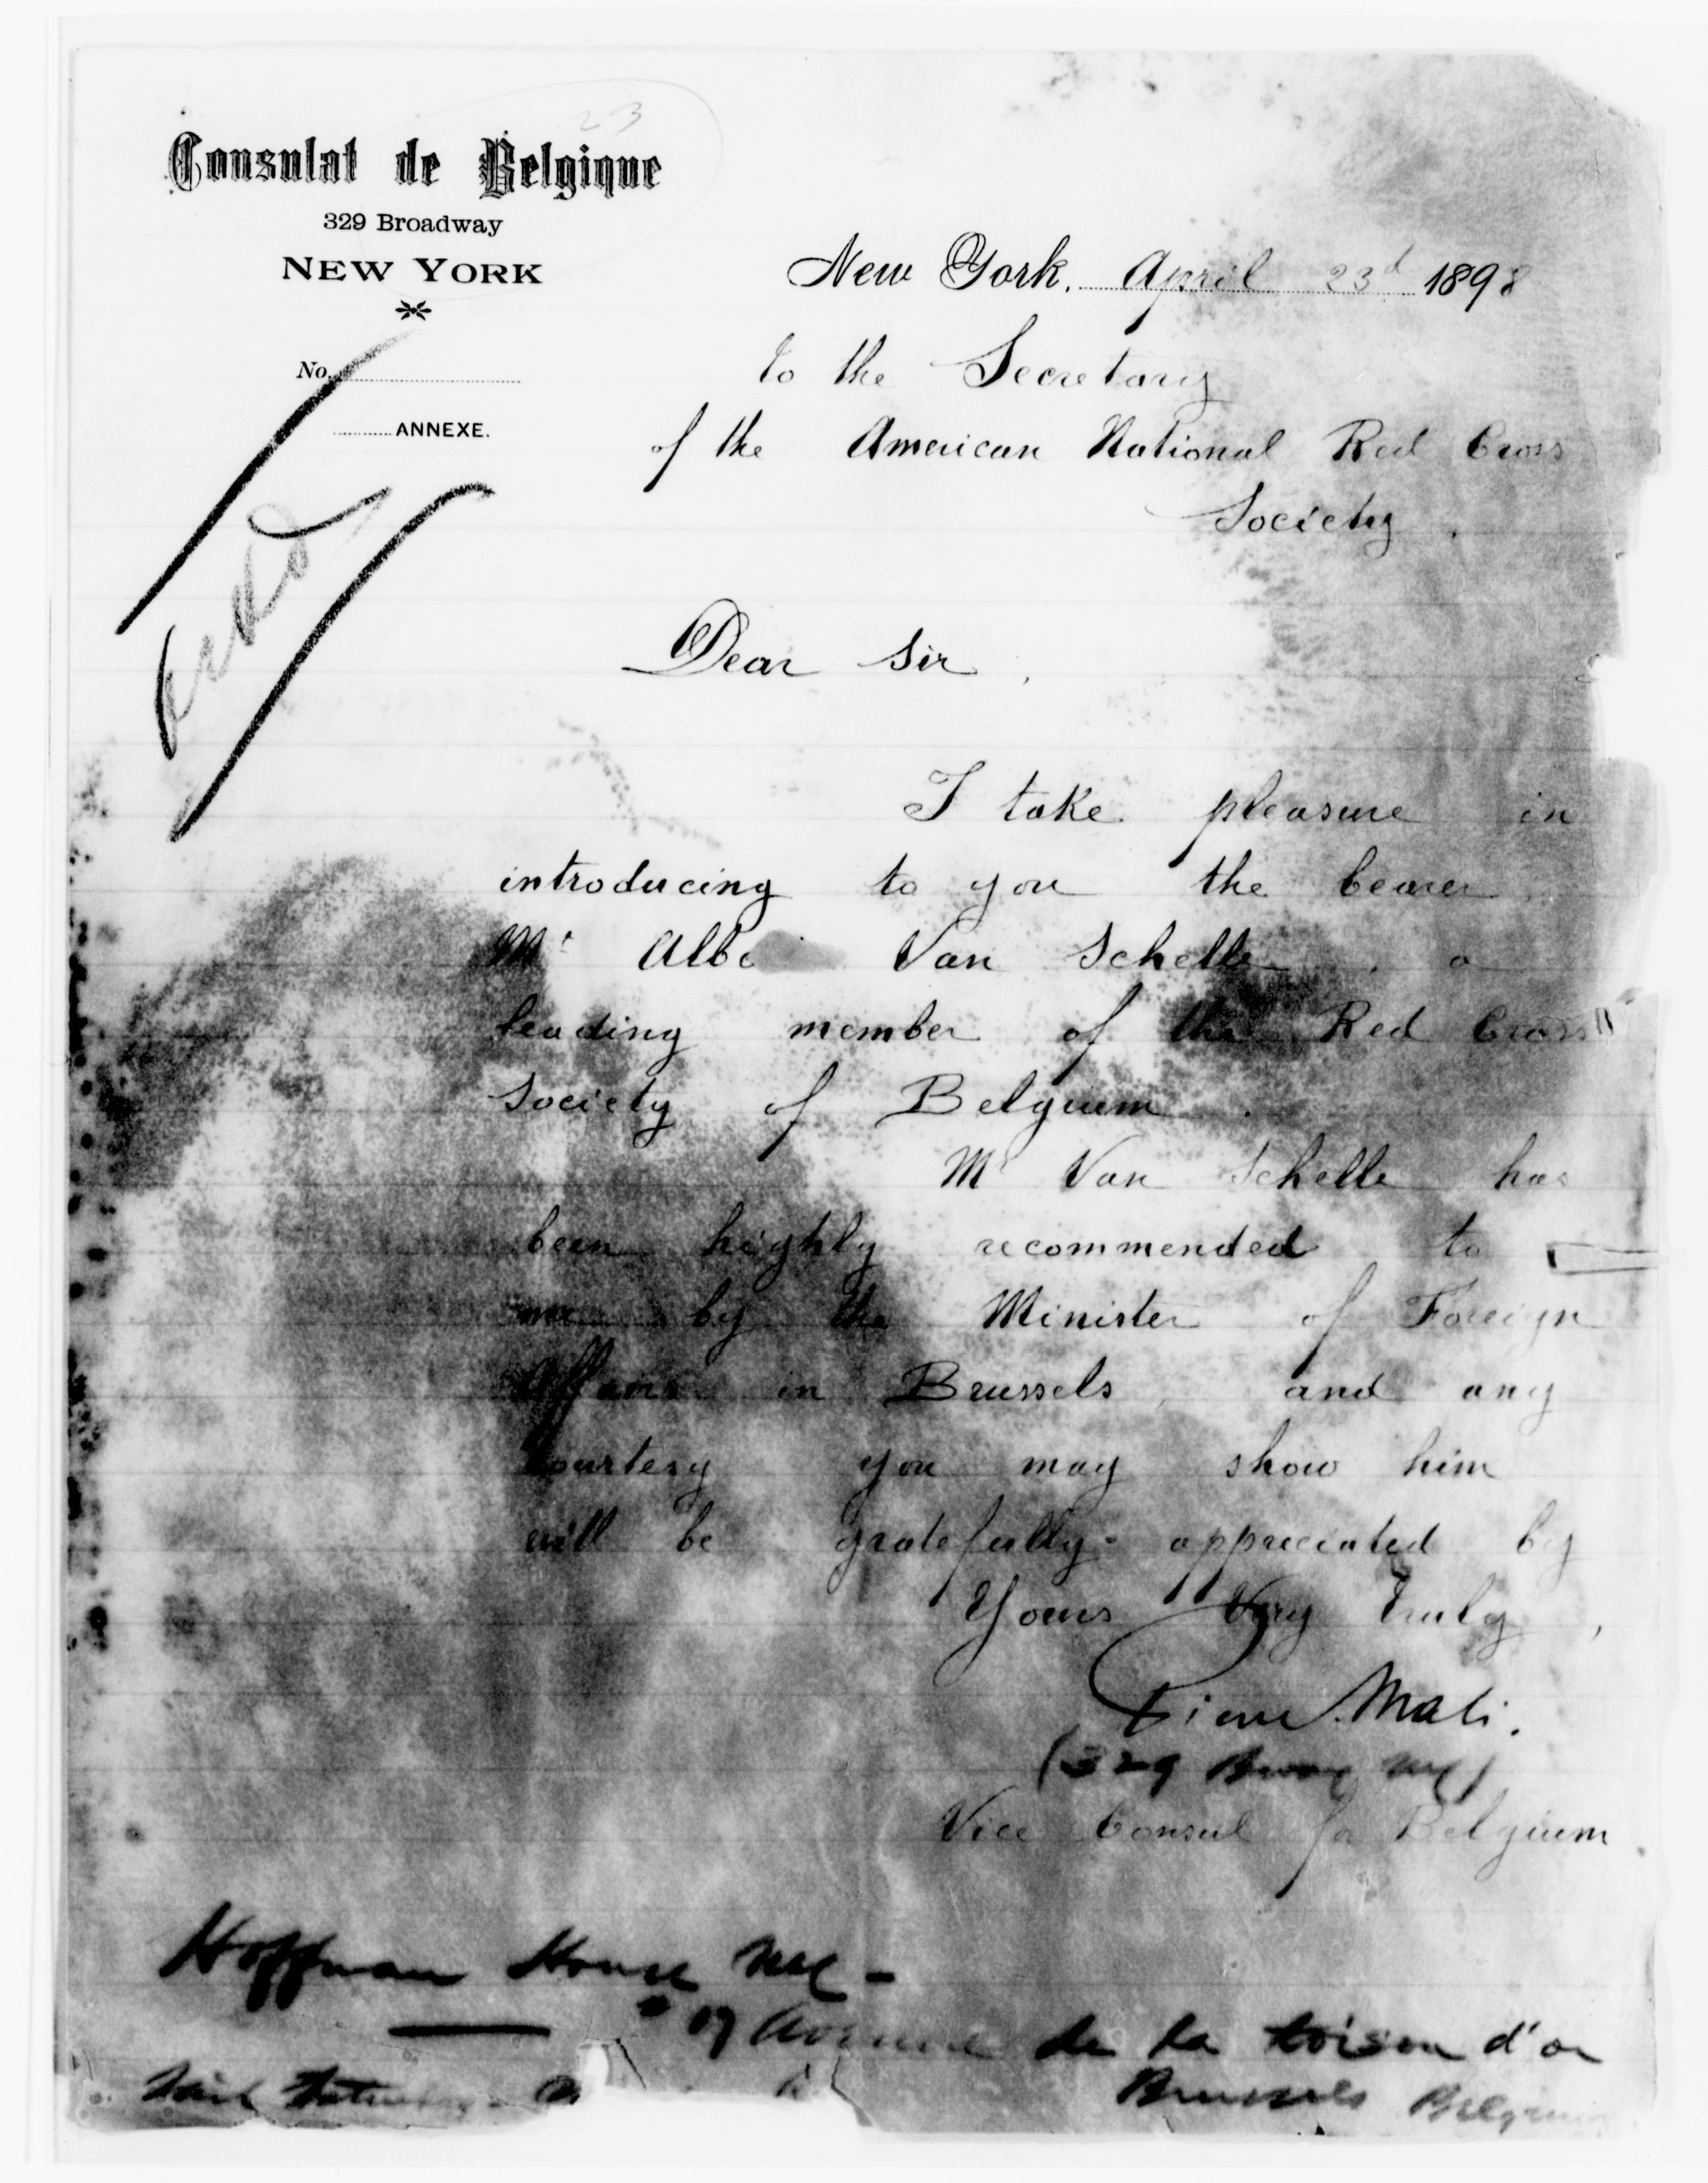 23
Consulat de Belgique
329 Broadway
NEW YORK
No.
ANNEXE.
New York, April 23d 1898
to the Secretary
of the American National Red Cross
Society.
Dear Sir,
I take pleasure in
introducing to you the bearer
Mr Albe Van Schelle, a
leading member of the Red Cross
Society of Belgium.
Mr Van Schelle has
been highly recommended to
me by the Minister of Foreign
Affairs in Brussels, and any
courtesy you may show him
will be gratefully appreciated by
Yours Very Truly,
Pierre Mali.
(329 Bway NY)
Vice Consul for Belgium
Hoffman House NY -
17 Avenue de la toison d'or
Brussels Belgium